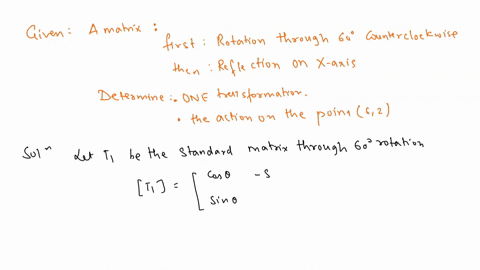 Given: A matrix:
first: Rotation through 60° Counterclockwise
then: Reflection on X-axis
Determine:. ONE transformation.
• the action on the point (5,2)
Solⁿ Let T₁ be the standard matrix through 60° rotation
[T₁] = [ cosθ -s
sinθ